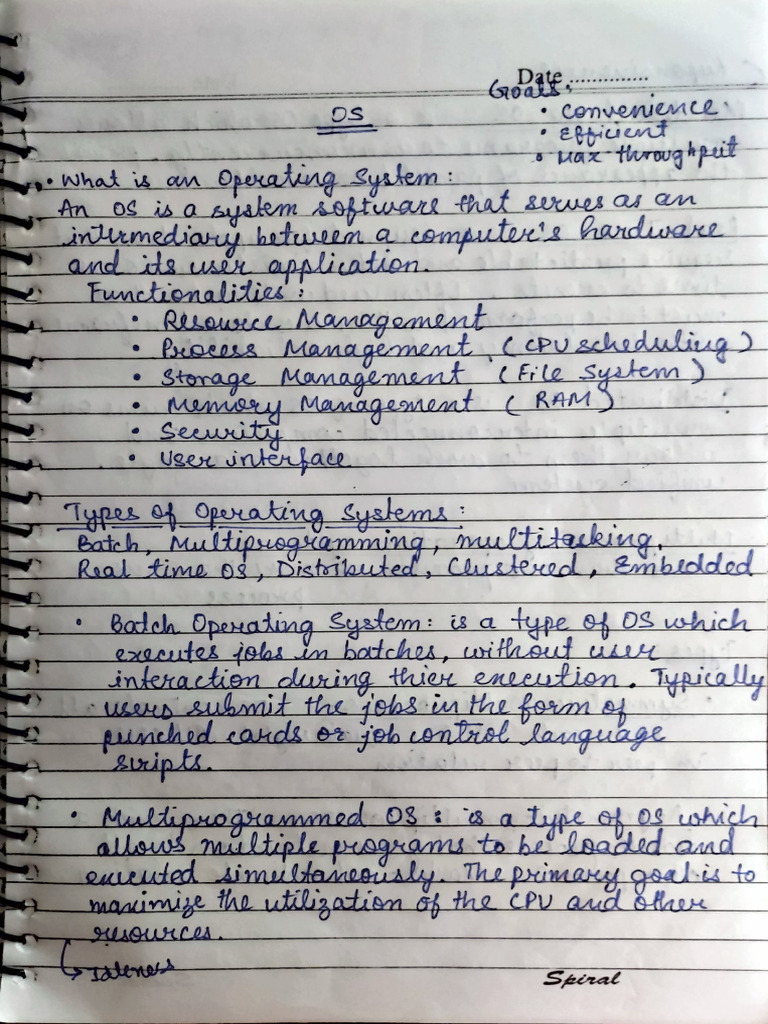 Date ..............
Goals:
• Convenience
• Efficient
• Max throughput
OS
• What is an Operating System:
An OS is a system software that serves as an
intermediary between a computer's hardware
and its user application.
Functionalities:
• Resource Management
• Process Management (CPU scheduling)
• Storage Management (File System)
• Memory Management (RAM)
• Security
• User interface
Types of Operating Systems:
Batch, Multiprogramming, multitasking,
Real time OS, Distributed, Clustered, Embedded
• Batch Operating System: is a type of OS which
executes jobs in batches, without user
interaction during thier execution. Typically
users submit the jobs in the form of
punched cards or job control language
scripts.
• Multiprogrammed OS: is a type of OS which
allows multiple programs to be loaded and
executed simultaneously. The primary goal is to
maximize the utilization of the CPU and other
resources.
↳ Idleness
Spiral